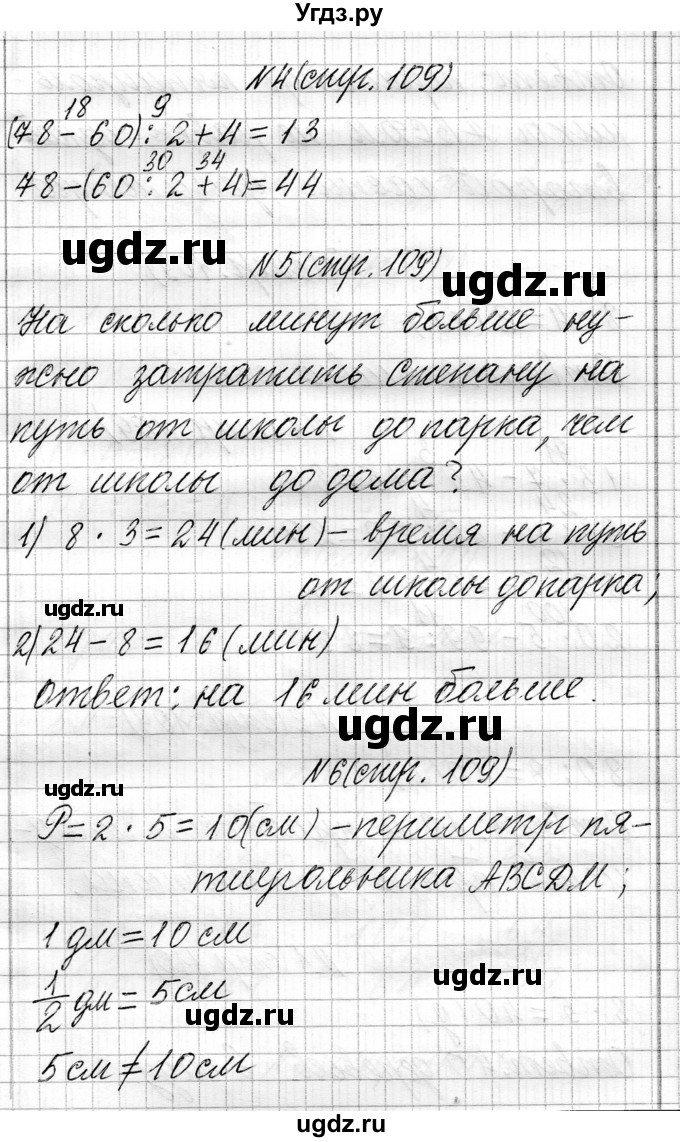 Угдз.ру
№4(стр. 109)
18 9
(78-60):2+4=13
30 34
78-(60:2+4)=44
ugdz.ru
№5(стр. 109)
ugdz.ru
На сколько минут больше ну-
жно затратить Степану на
путь от школы до парка, чем
от школы до дома?
1) 8·3=24(мин)-время на путь
от школы до парка;
ugdz.ru
2)24-8=16(мин)
ответ: на 16 мин больше.
ugdz.ru
№6(стр. 109)
ugdz.ru
P=2·5=10(см)-периметр пя-
тиугольника ABCDM;
1 дм=10 см
ugdz.ru
1/2 дм=5см
ugdz.ru
5см≠10см
ugdz.ru